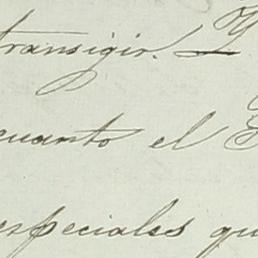 transigir. Y
cuanto el
especiales qu